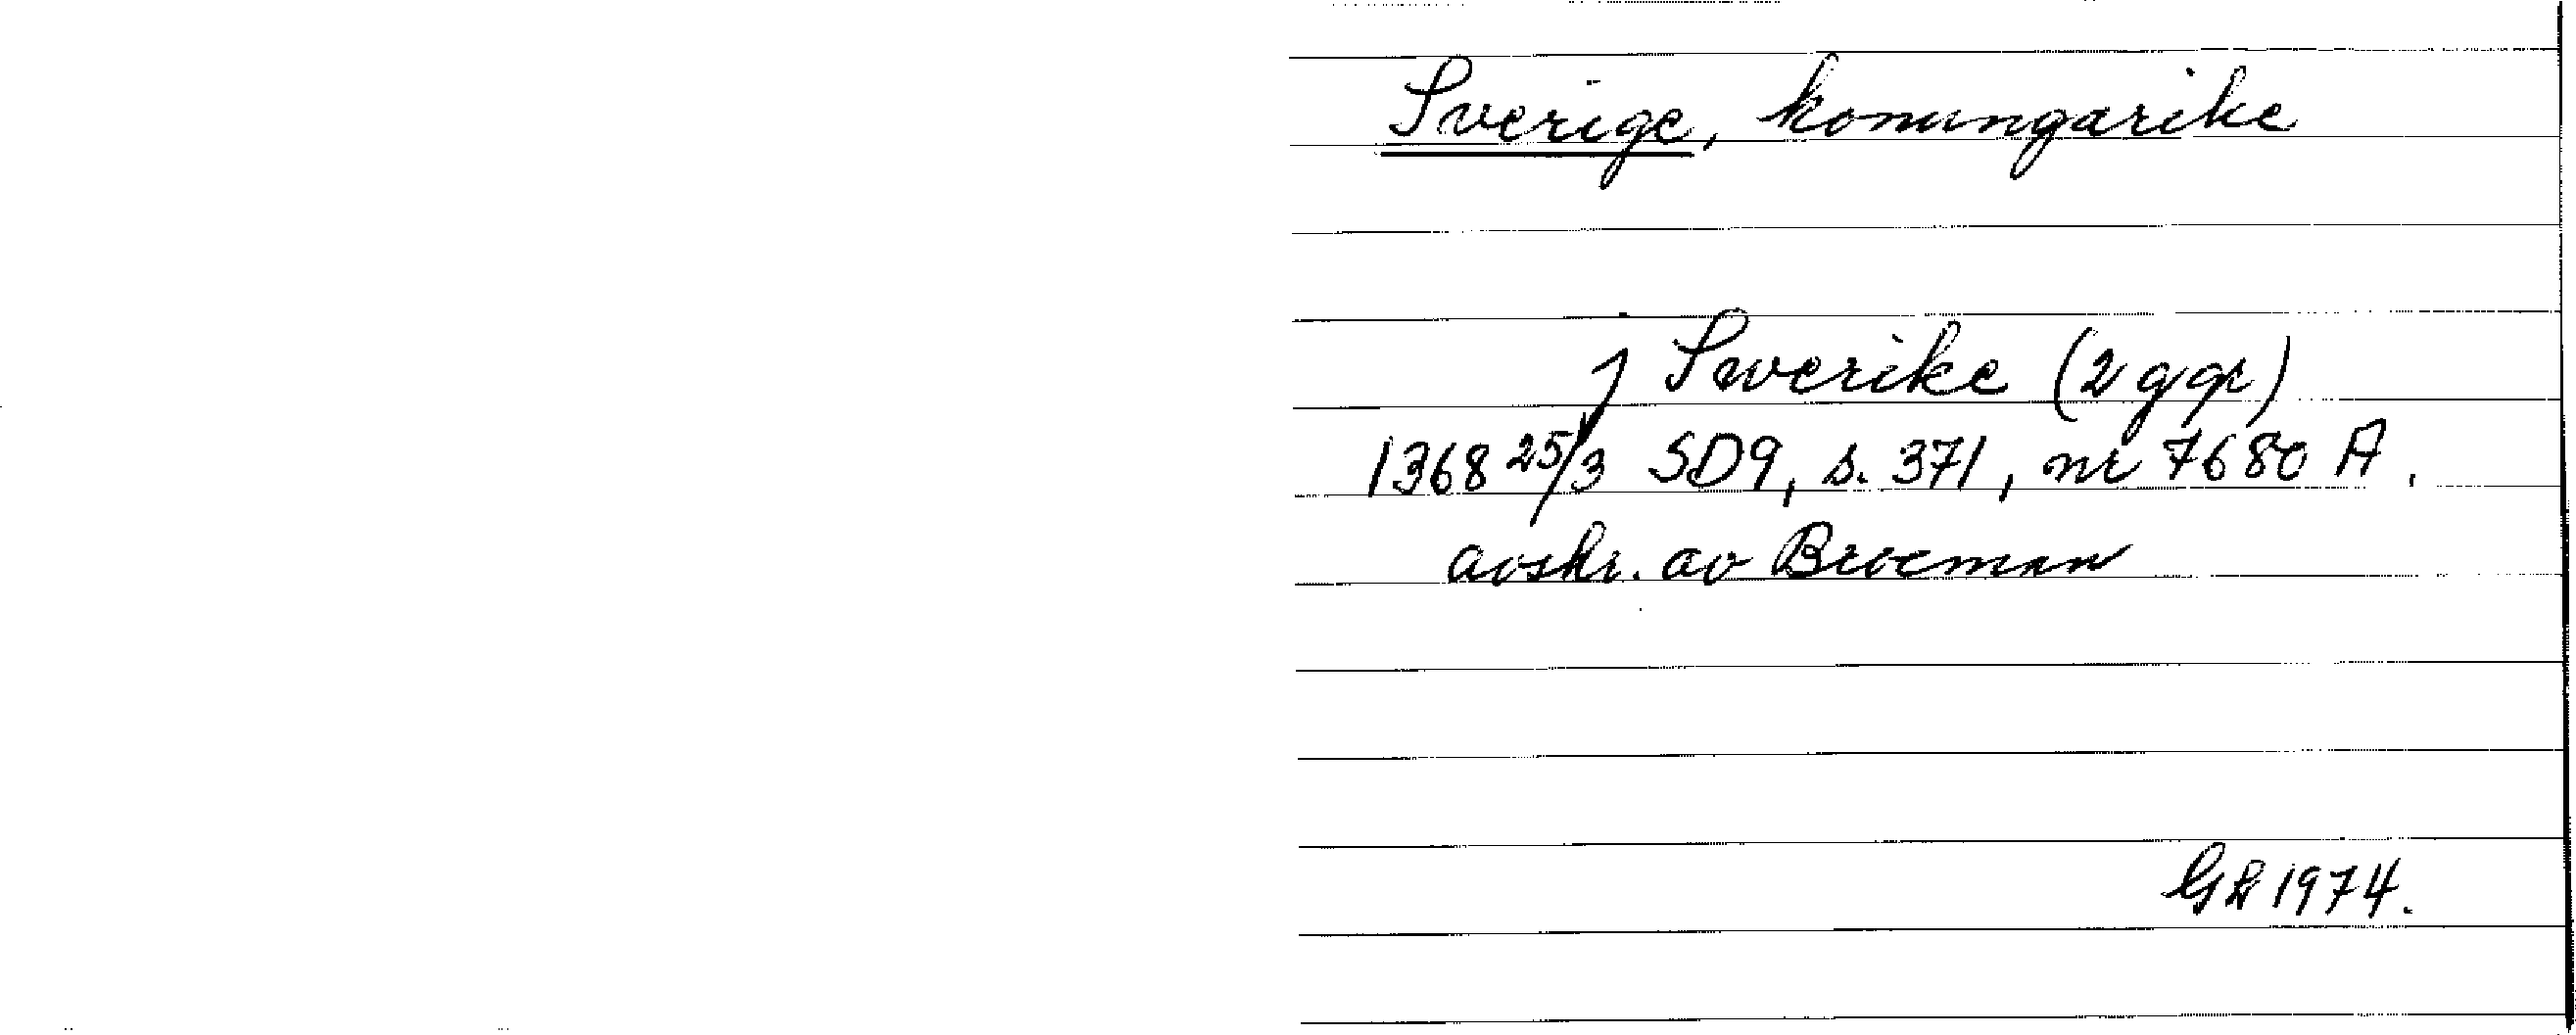 Sverige, konungarike
j Swerike (2 ggr)
1368 25/3 SD9, s. 371, nr 7680 A.
avskr. av Brocman
1974.